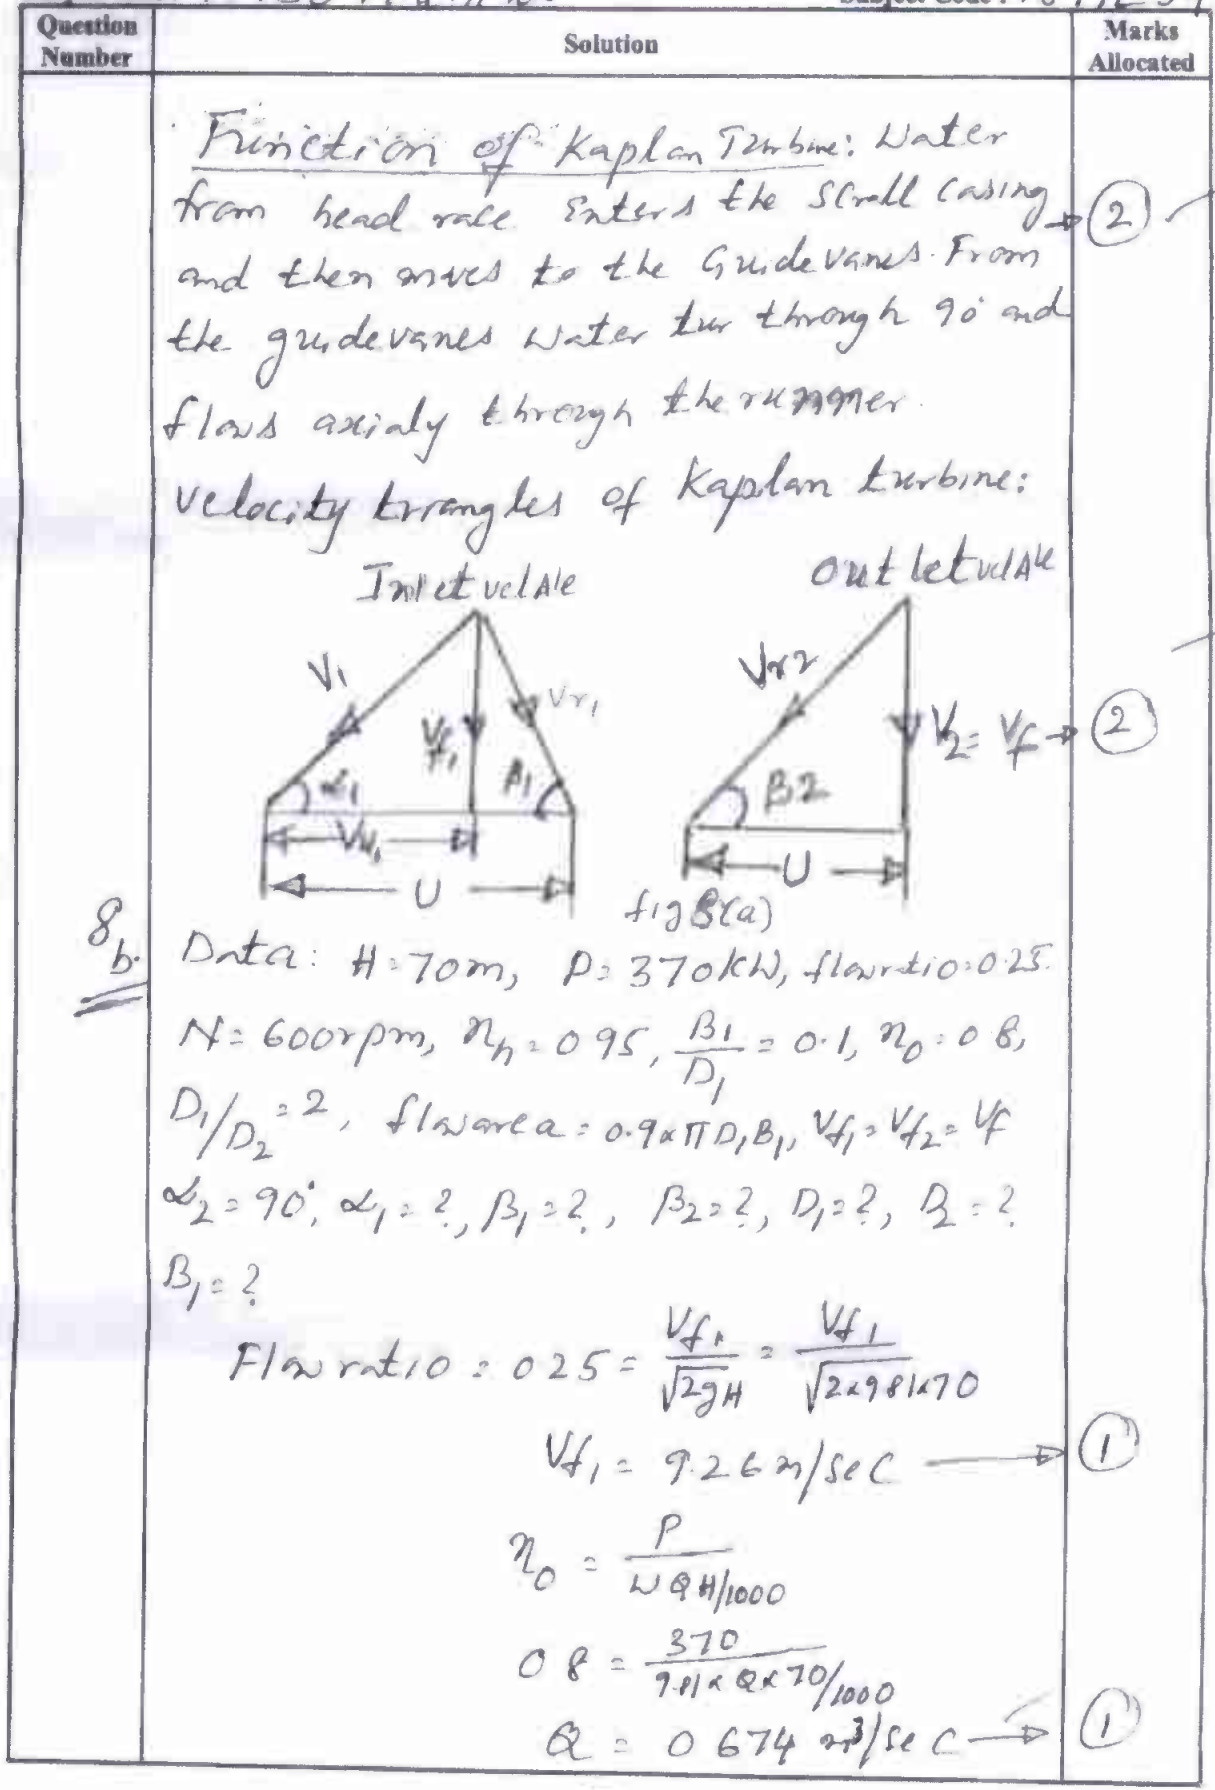 Question Number
Solution
Marks Allocated
Function of Kaplan Turbine: Water
from head race Enters the Scroll Casing → 2
and then moves to the Guidevanes. From
the guidevanes Water tur through 90° and
flows axialy through the runner.
Velocity triangles of Kaplan turbine:
Inlet vel Δle
Outlet vel Δle
V1
Vf1
Vr1
α1
β1
Vw1
U
Vr2
V2 = Vf → 2
β2
U
fig 8(a)
8 b.
Data: H=70m, P=370kW, flow ratio=0.25.
N=600rpm, ηh=0.95, B1/D1=0.1, ηo=0.8,
D1/D2=2, flow area=0.9xπD1B1, Vf1=Vf2=Vf
α2=90°, α1=?, β1=?, β2=?, D1=?, D2=?
B1=?
Flow ratio = 0.25 = Vf1/√2gH = Vf1/√2x9.81x70
Vf1 = 9.26 m/sec → 1
ηo = P/WQH/1000
0.8 = 370/9.81xQx70/1000
Q = 0.674 m³/sec → 1